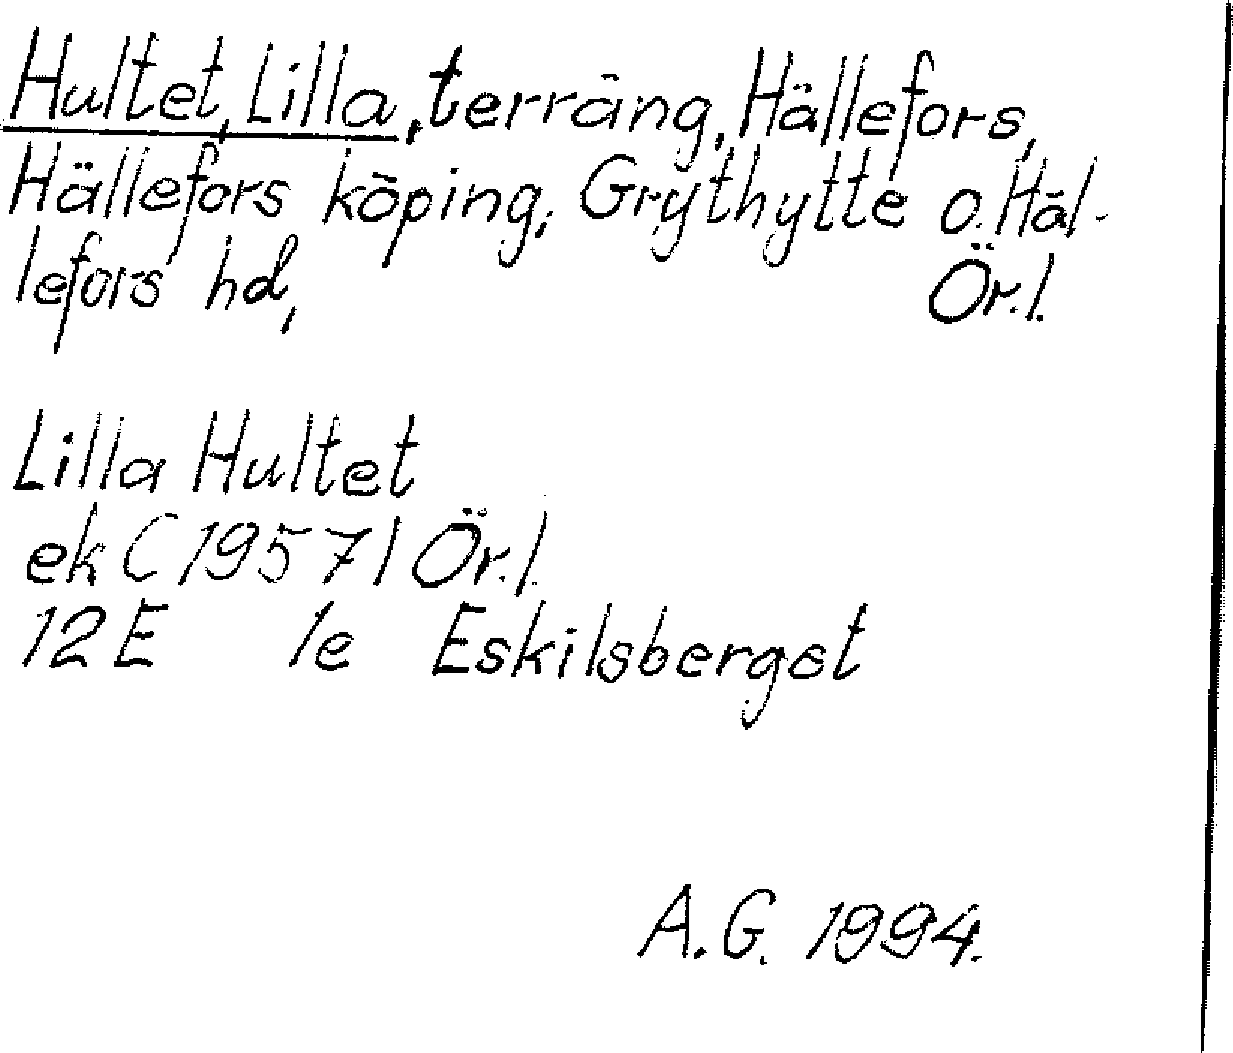 Hultet, Lilla, terräng, Hällefors,
Hällefors köping, Grythytte o. Häl-
lefors hd, Ör.l.
Lilla Hultet
ek (1957) Ör.l.
12E 1e Eskilsberget
A.G. 1994.